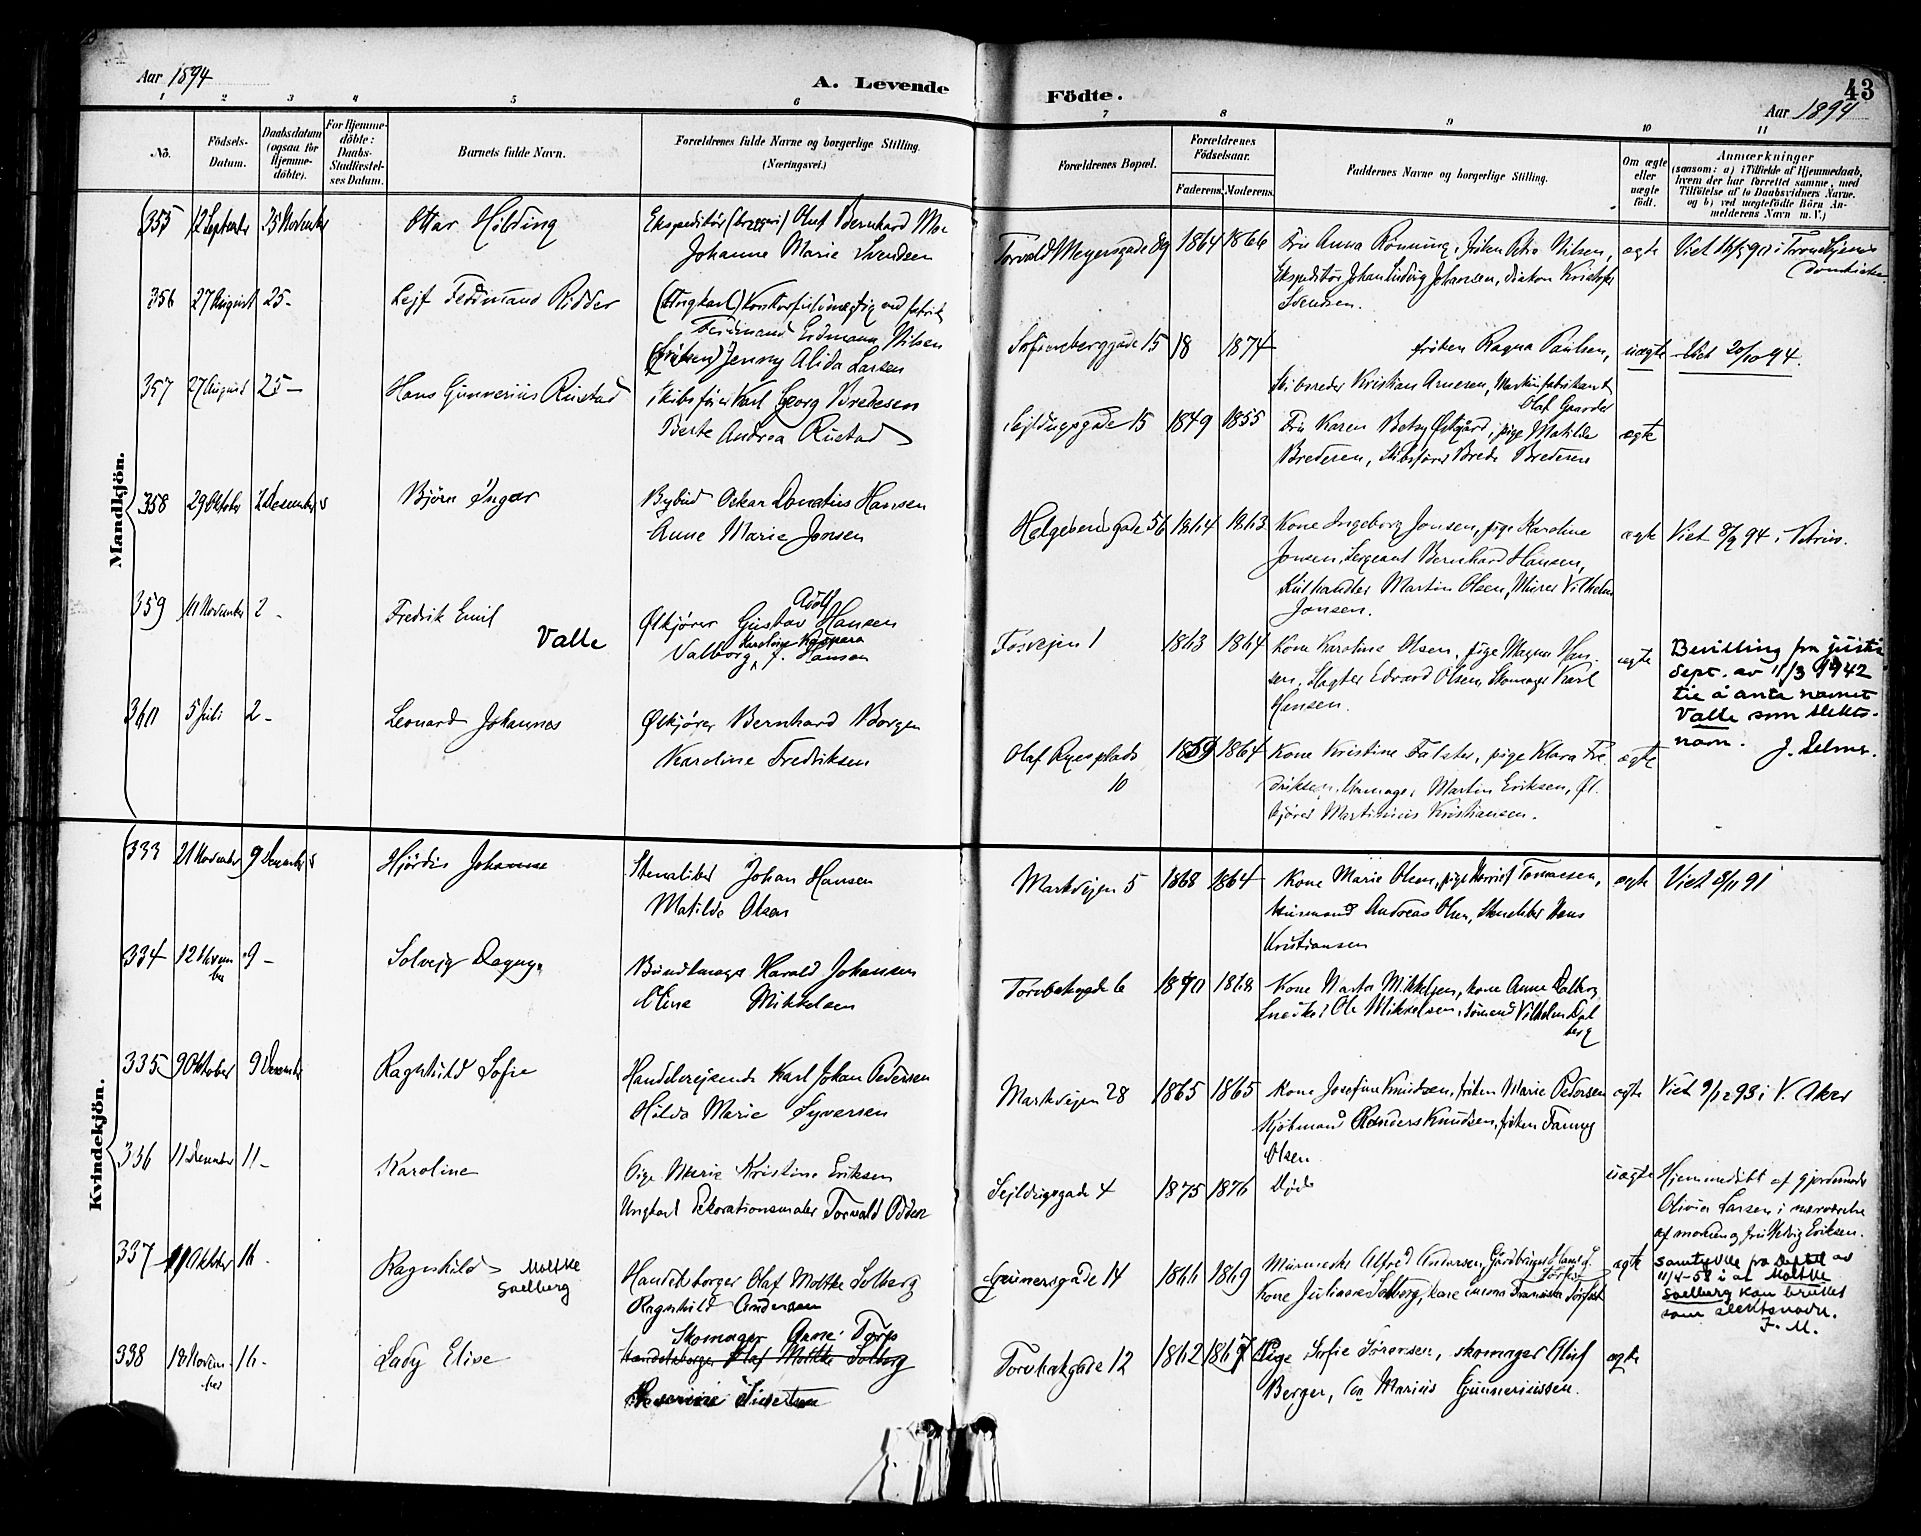 Aar 1894
A. Levende
Födte.
43
Aar 1894
1 2 3 4 5 6 7 8 9 10 11
No.
Födsels-Datum.
Daabsdatum (ogsaa for Hjemme-döbte).
For Hjemme-döbte: Daabs-Stadfæstel-ses Datum.
Barnets fulde Navn.
Forældrenes fulde Navne og borgerlige Stilling.
(Næringsvei.)
Forældrenes Bopæl.
Forældrenes Födselsaar.
Faderens. Moderens.
Faddernes Navne og borgerlige Stilling.
Om ægte eller uægte födt.
Anmærkninger
(saasom: a) i Tilfælde af Hjemmedaab, hvem der har forrettet samme, med Tilföielse af to Daabsvidners Navne. og b) ved uægtefödte Börn Anmelderens Navn m. V.)
Mandkjön.
355 12 September 25 November
Ottar Hilding
Olaf Bernhard Moe
Johanne Marie Svendsen
Torvald Meyersgade 89 1864 1866
Fru Anna Rönning, fröken Petra Nilsen,
Ekspeditör Johan Ludvig Johansen, diakon Kristofer
Svendsen.
ægte
356 27 August 25 -
Lejf Ferdinand Ridder
(Ungkarl) Kontorfuldmægtig ved fabrik
Ferdinand Erdmann Nilsen
(Fröken) Jenny Alida Larsen
Sofienberggade 15 18 1874
fröken Ragna Paulsen,
Skibsreder Kristian Arnesen, Maskinfabrikant
Olaf Gaarder
uægte
Död 20/10 94.
357 27 August 25 -
Hans Gunnerius Rustad
Skibsförer Karl Georg Bredesen
Berte Andrea Rustad
Sejldugsgade 15 1849 1855
Fru Karen Betsy Østgård, pige Matilde
Bredesen, Skibsförer Brede Bredesen
ægte
358 29 Oktober 2 Desember
Björn Ingar
Bybud Oskar Donatius Hansen
Anne Marie Jonsen
Helgesensgade 56 1864 1863
Kone Ingeborg Jonsen, pige Karoline
Jonsen, Sergeant Bernhard Hansen,
Kulhandler Martin Olsen, Murer Vilhelm
Jonsen.
ægte
Viet 8/9 94 i Petrus.
359 11 November 2 -
Fredrik Emil
Valle
Adolf
Ølkjörer Gustav Hansen
Karoline Kaspara
Valborg f. Hansen
Fosvejen 1 1863 1864
Kone Karoline Olsen, pige Magna Han-
sen, Slagter Edvard Olsen, Skomager Karl
Hansen.
ægte
Bevilling fra justis
dept. av 11/3 1942
til å anta navnet
Valle som slekts-
navn.
360 5 Juli 2 -
Leonard Johannes
Ølkjörer Bernhard Borgen
Karoline Fredriksen
Olaf Ryesplads
10
1859 1864
Kone Kristine Falster, pige Klara Fre
driksen, Urmager Martin Eriksen, Öl.
kjörer Martinius Kristiansen.
ægte
Kvindekjön.
333 21 November 9 Desember
Hjördis Johanne
Johan Hansen
Matilde Olsen
Markvejen 5 1868 1864
Kone Marie Olsen, pige Harriet Tomassen,
Murmand Andreas Olsen, Hans
Kristiansen
ægte
Viet 8/11 91
334 12 Novem
ber
9 -
Solvejg Dagny
Buntmager Harald Johansen
Oline Mikkelsen
Torvbakgade 6 1870 1868
Kone Marta Mikkelsen, kone Anna Dalberg
Snedker Ole Mikkelsen, Sömand Vilhelm Dal
berg
335 9 Oktober 9 Desember
Ragnhild Sofie
Handelsrejsende Karl Johan Pedersen
Hilda Marie Syversen
Markvejen 28 1865 1865
Kone Josefine Knudsen, fröken Marie Pedersen
Kjöbmand Randers Knudsen, fröken Fanny
Olsen
ægte
Viet 9/12 93 i V. Aker
336 11 Desember 11 -
Karoline
Pige Marie Kristine Eriksen
Ungkarl Dekorationsmaler Torvald Odden
Sejldugsgade 4 1875 1876
Död
uægte
Hjemmedöbt af gjordmoder
Olivia Larsen i nærværelse
af moderen og fru Hedvig Eriksen.
337 Oktober 16 -
Ragnhild Moltke
Saelberg
Handelsborger Olaf Moltke Solberg
Ragnhild Andersen
Grünersgade 14 1866 1869
Murmester Alfred Andersen,
Kone Juliane Solberg, kone Emma Franciska
ægte
Samtykke fra Deptet av
11/4-58 i at Moltke
Saelberg kan bruker
som slektsnavn.
F. M.
338 18 Novem
ber
16 -
Lady Elise
Skomager Arne Torp
Handelsborger Olaf Moltke Solberg
Torvbakgade 12 1862 1867
Pige Sofie Sörensen, skomager Oluf
Berger, Marius Gunneriussen.
ægte